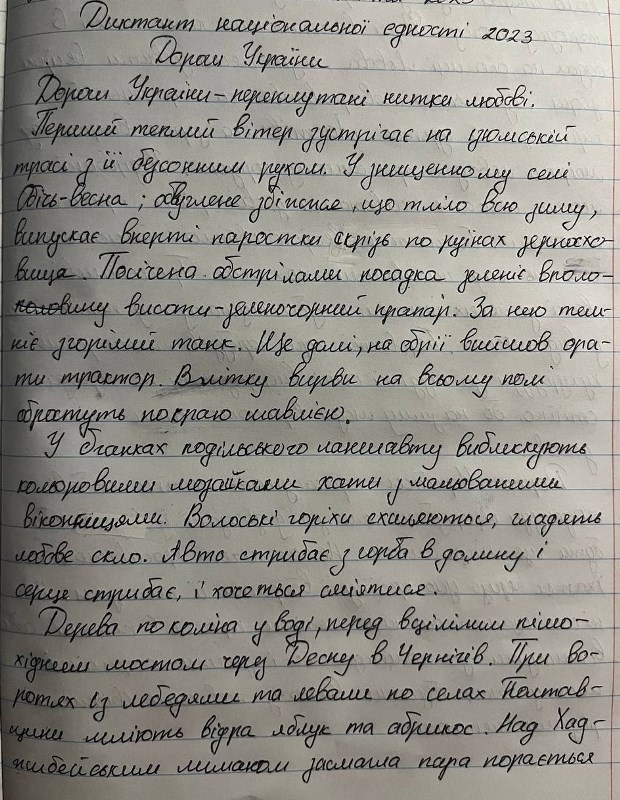 Диктант національної єдності 2023
Дороги України
Дороги України - переплутані нитки любові.
Перший теплий вітер зустрічає на ізюмській
трасі з її безсонним рухом. У знищенному селі
обіч-весна; обвуглене збіжжя, що тліло всю зиму,
випускає вперті паростки скрізь по руїнах зерносхо-
вища. Посічена обстрілами посадка зеленіє впполо-
вину висоти - зеленочорний прапор. За нею тем-
ніє згорілий танк. Ще далі, на обрії вийшов ора-
ти трактор. Влітку вирви на всьому полі
обростуть по краю шавлією.
У бганках подільського ланшавту виблискують
кольоровими мозаїками хати з мальованими
віконницями. Волоські горіхи схиляються, гладять
лобове скло. Авто стрибає з горба в долину і
серце стрибає, і хочеться сміятися.
Дерева по коліна у воді, перед вцілілим пішо-
хіднем мостом через Десну в Чернігів. При во-
ротях із лебедями та левами по селах Полтав-
щини мліють відра яблук та абрикос. Над Хад-
жибейським лиманом засмагла пара порається